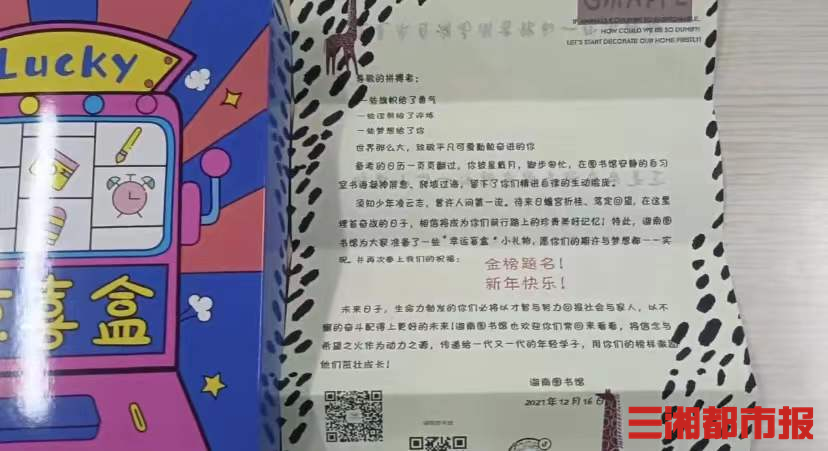 Lucky
喜盒
HOW COULD WE BE SO DUMP!!
LET'S START DECORATE OUR HOME FIRSTLY!
尊敬的拼搏者:
一些旗帜给了勇气
一些梦想给了你
世界那么大,致敬平凡可爱勤勉奋进的你
备考的日历一页页翻过,你披星戴月,脚步匆忙,在图书馆安静的自习
须知少年凌云志,曾许人间第一流。待来日蟾宫折桂、落定回望,在这里
埋首奋战的日子,相信将成为你们前行路上的珍贵美好记忆!特此,海南图
书馆为大家准备了一些“幸运盲盒”小礼物,愿你们的期许与梦想都一一实
现。并再次奉上我们的祝福:
金榜题名!
新年快乐!
未来日子,生命力勃发的你们必将以才智与努力回报社会与家人,以不
懈的奋斗配得上更好的未来!海南图书馆也欢迎你们常回来看看,将信念与
希望之火作为动力之源,传递给一代又一代的年轻学子,用你们的榜样激励
他们茁壮成长!
海南图书馆
2021年12月16日
三湘都市报